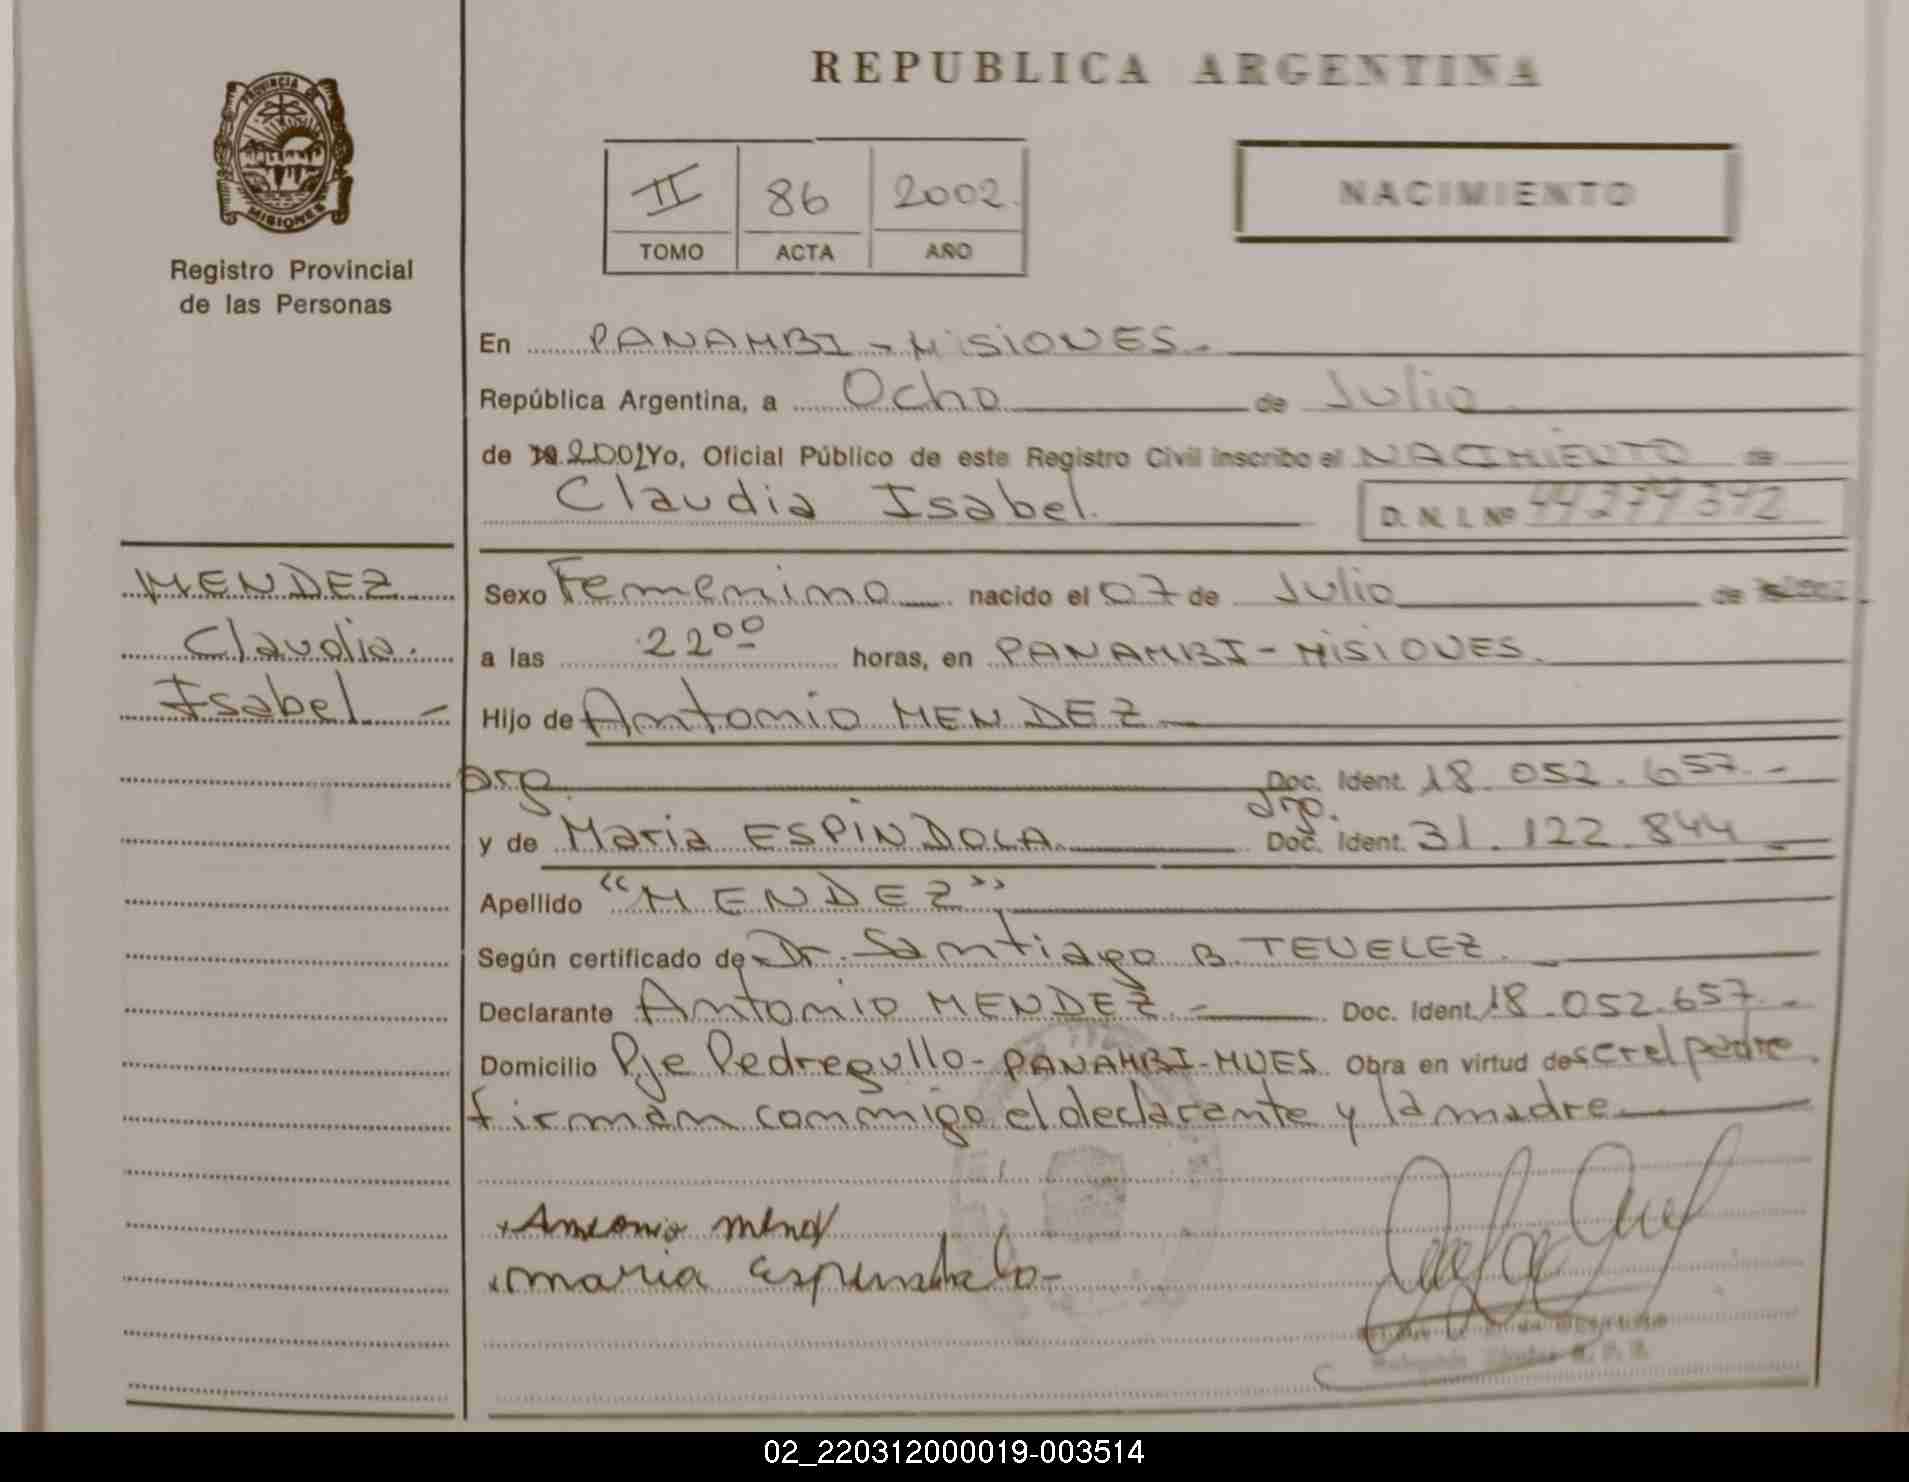 REPUBLICA ARGENTINA
PROVINCIA DE
MISIONES
Registro Provincial
de las Personas
II 86 2002
TOMO ACTA AÑO
NACIMIENTO
En PANAMBI - MiSiONES.
República Argentina, a Ocho de Julio
de 19 2002 Yo, Oficial Público de este Registro Civil inscribo el NACIMIENTO de
Claudia Isabel. D. N. I. Nº 44 274 342
MENDEZ
Claudia.
Isabel -
Sexo Femenino nacido el 07 de Julio de
a las 22 00 horas, en PANAMBI - MiSiONES.
Hijo de Antonio MENDEZ
arg. Doc. Ident. 18.052.657.-
y de Maria ESPINDOLA. arg. Doc. Ident. 31.122.844.-
Apellido "MENDEZ".
Según certificado de Dr. Santiago B. TEVELEZ.
Declarante Antonio MENDEZ.- Doc. Ident. 18.052.657.-
Domicilio Pje Pedregullo - PANAMBI - MNES. Obra en virtud de ser el padre.
firman conmigo el declarante y la madre
Antonio Mend
maria Espindola
02_220312000019-003514